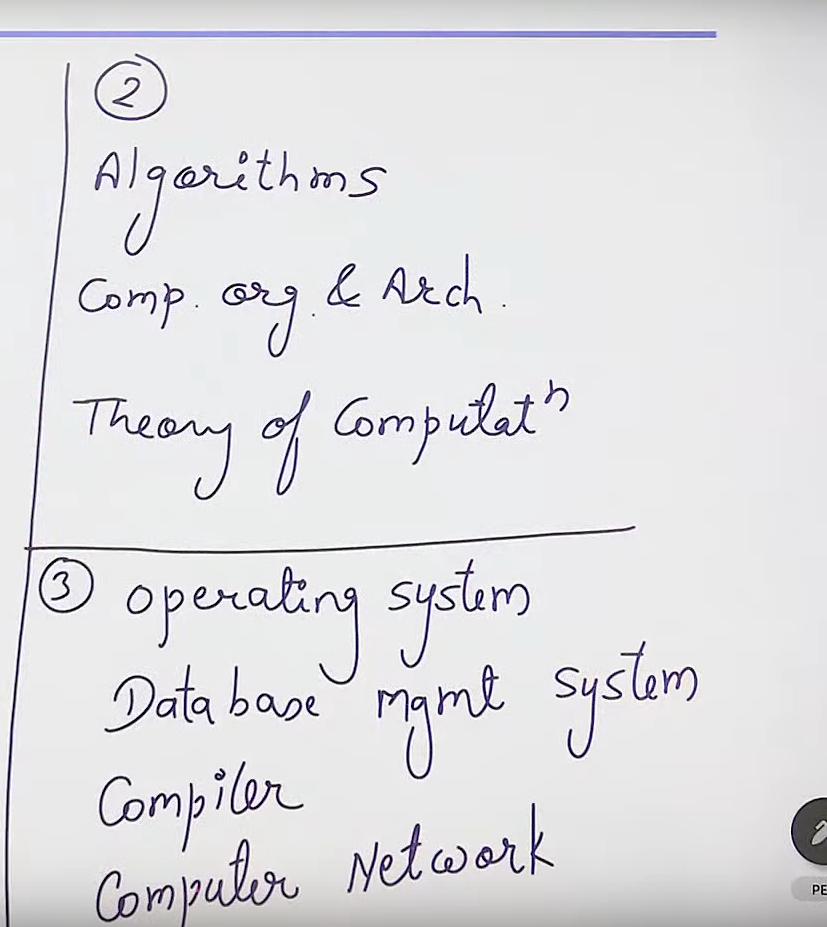 ②
Algorithms
Comp. org. & Arch.
Theory of Computatⁿ
③ operating system
Database mgmt system
Compiler
Computer Network
PE